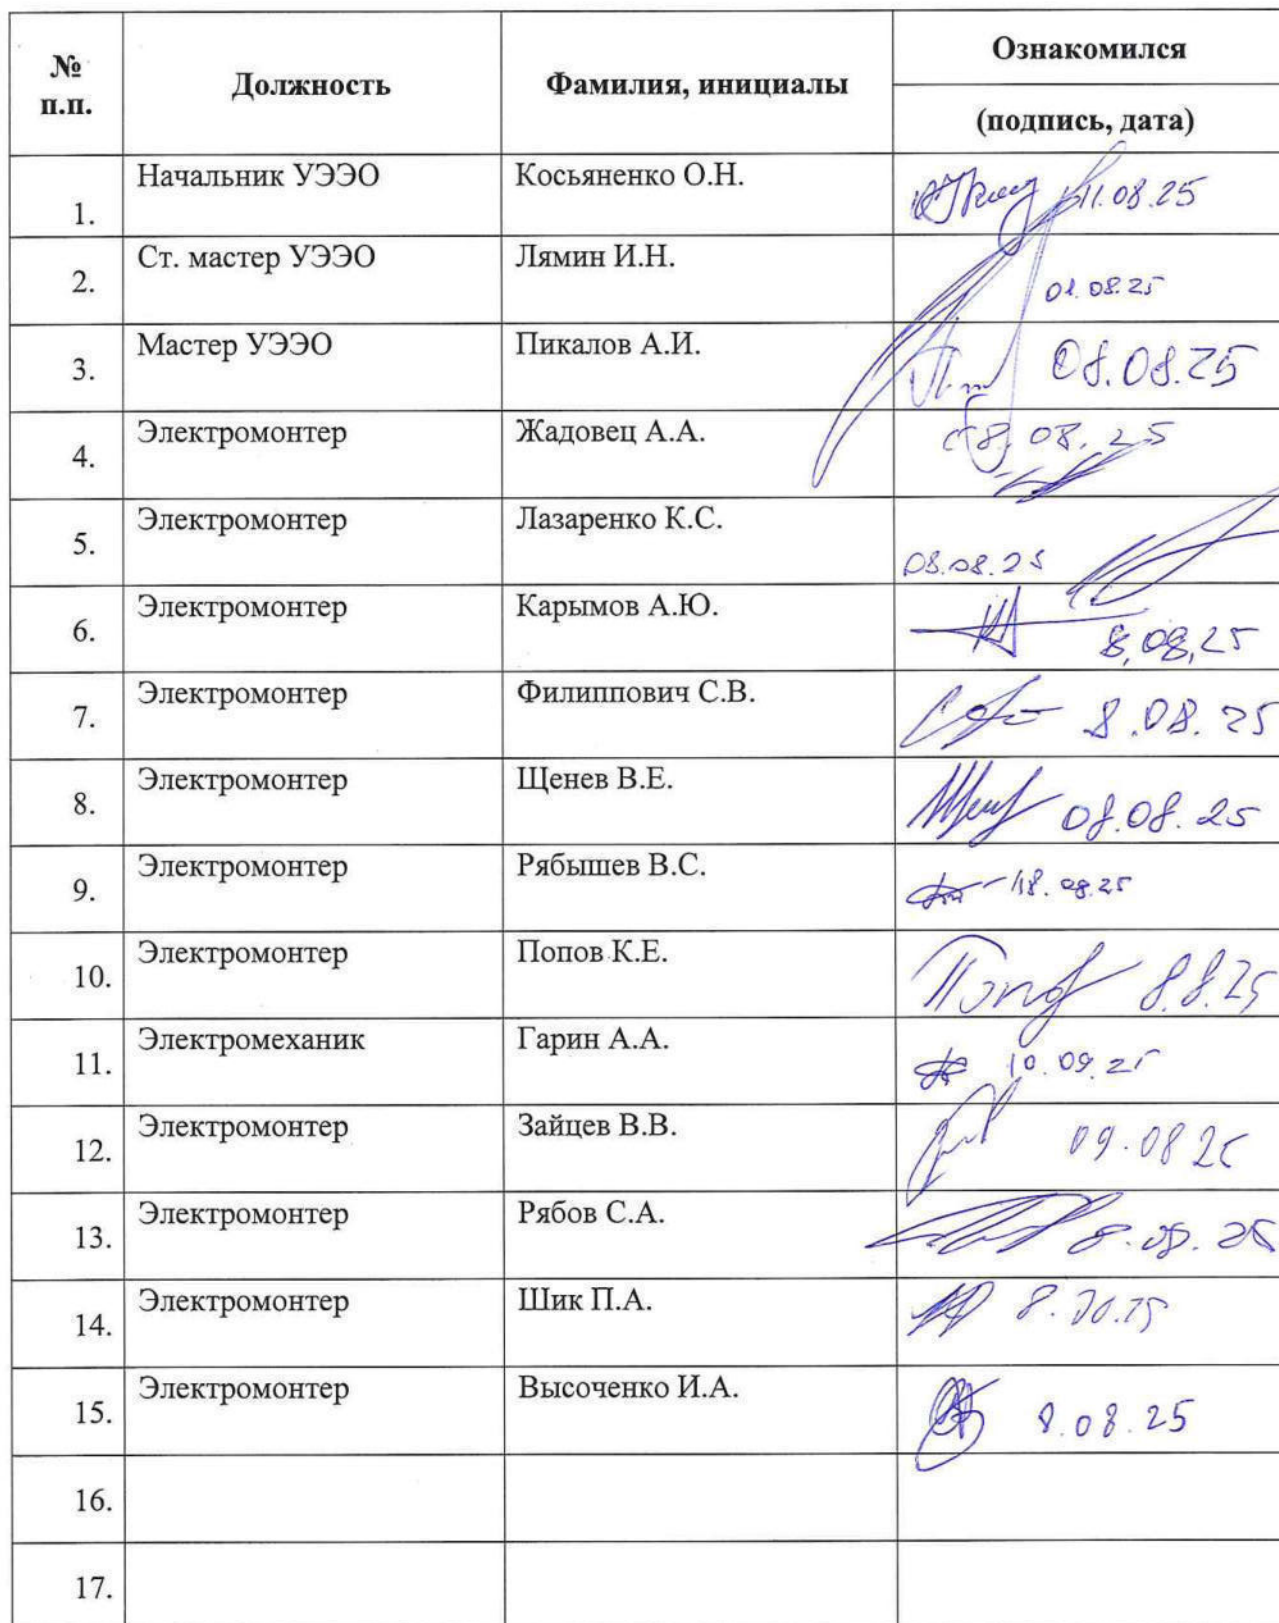 № п.п. Должность Фамилия, инициалы Ознакомился
(подпись, дата)
1. Начальник УЭЭО Косьяненко О.Н. 11.08.25
2. Ст. мастер УЭЭО Лямин И.Н. 01.08.25
3. Мастер УЭЭО Пикалов А.И. 08.08.25
4. Электромонтер Жадовец А.А. 08.08.25
5. Электромонтер Лазаренко К.С. 08.08.25
6. Электромонтер Карымов А.Ю. 8,08,25
7. Электромонтер Филиппович С.В. 8.08.25
8. Электромонтер Щенев В.Е. 08.08.25
9. Электромонтер Рябышев В.С. 18.08.25
10. Электромонтер Попов К.Е. 8.8.25
11. Электромеханик Гарин А.А. 10.09.25
12. Электромонтер Зайцев В.В. 09.08 25
13. Электромонтер Рябов С.А. 8.08.25
14. Электромонтер Шик П.А.
15. Электромонтер Высоченко И.А. 8.08.25
16.
17.